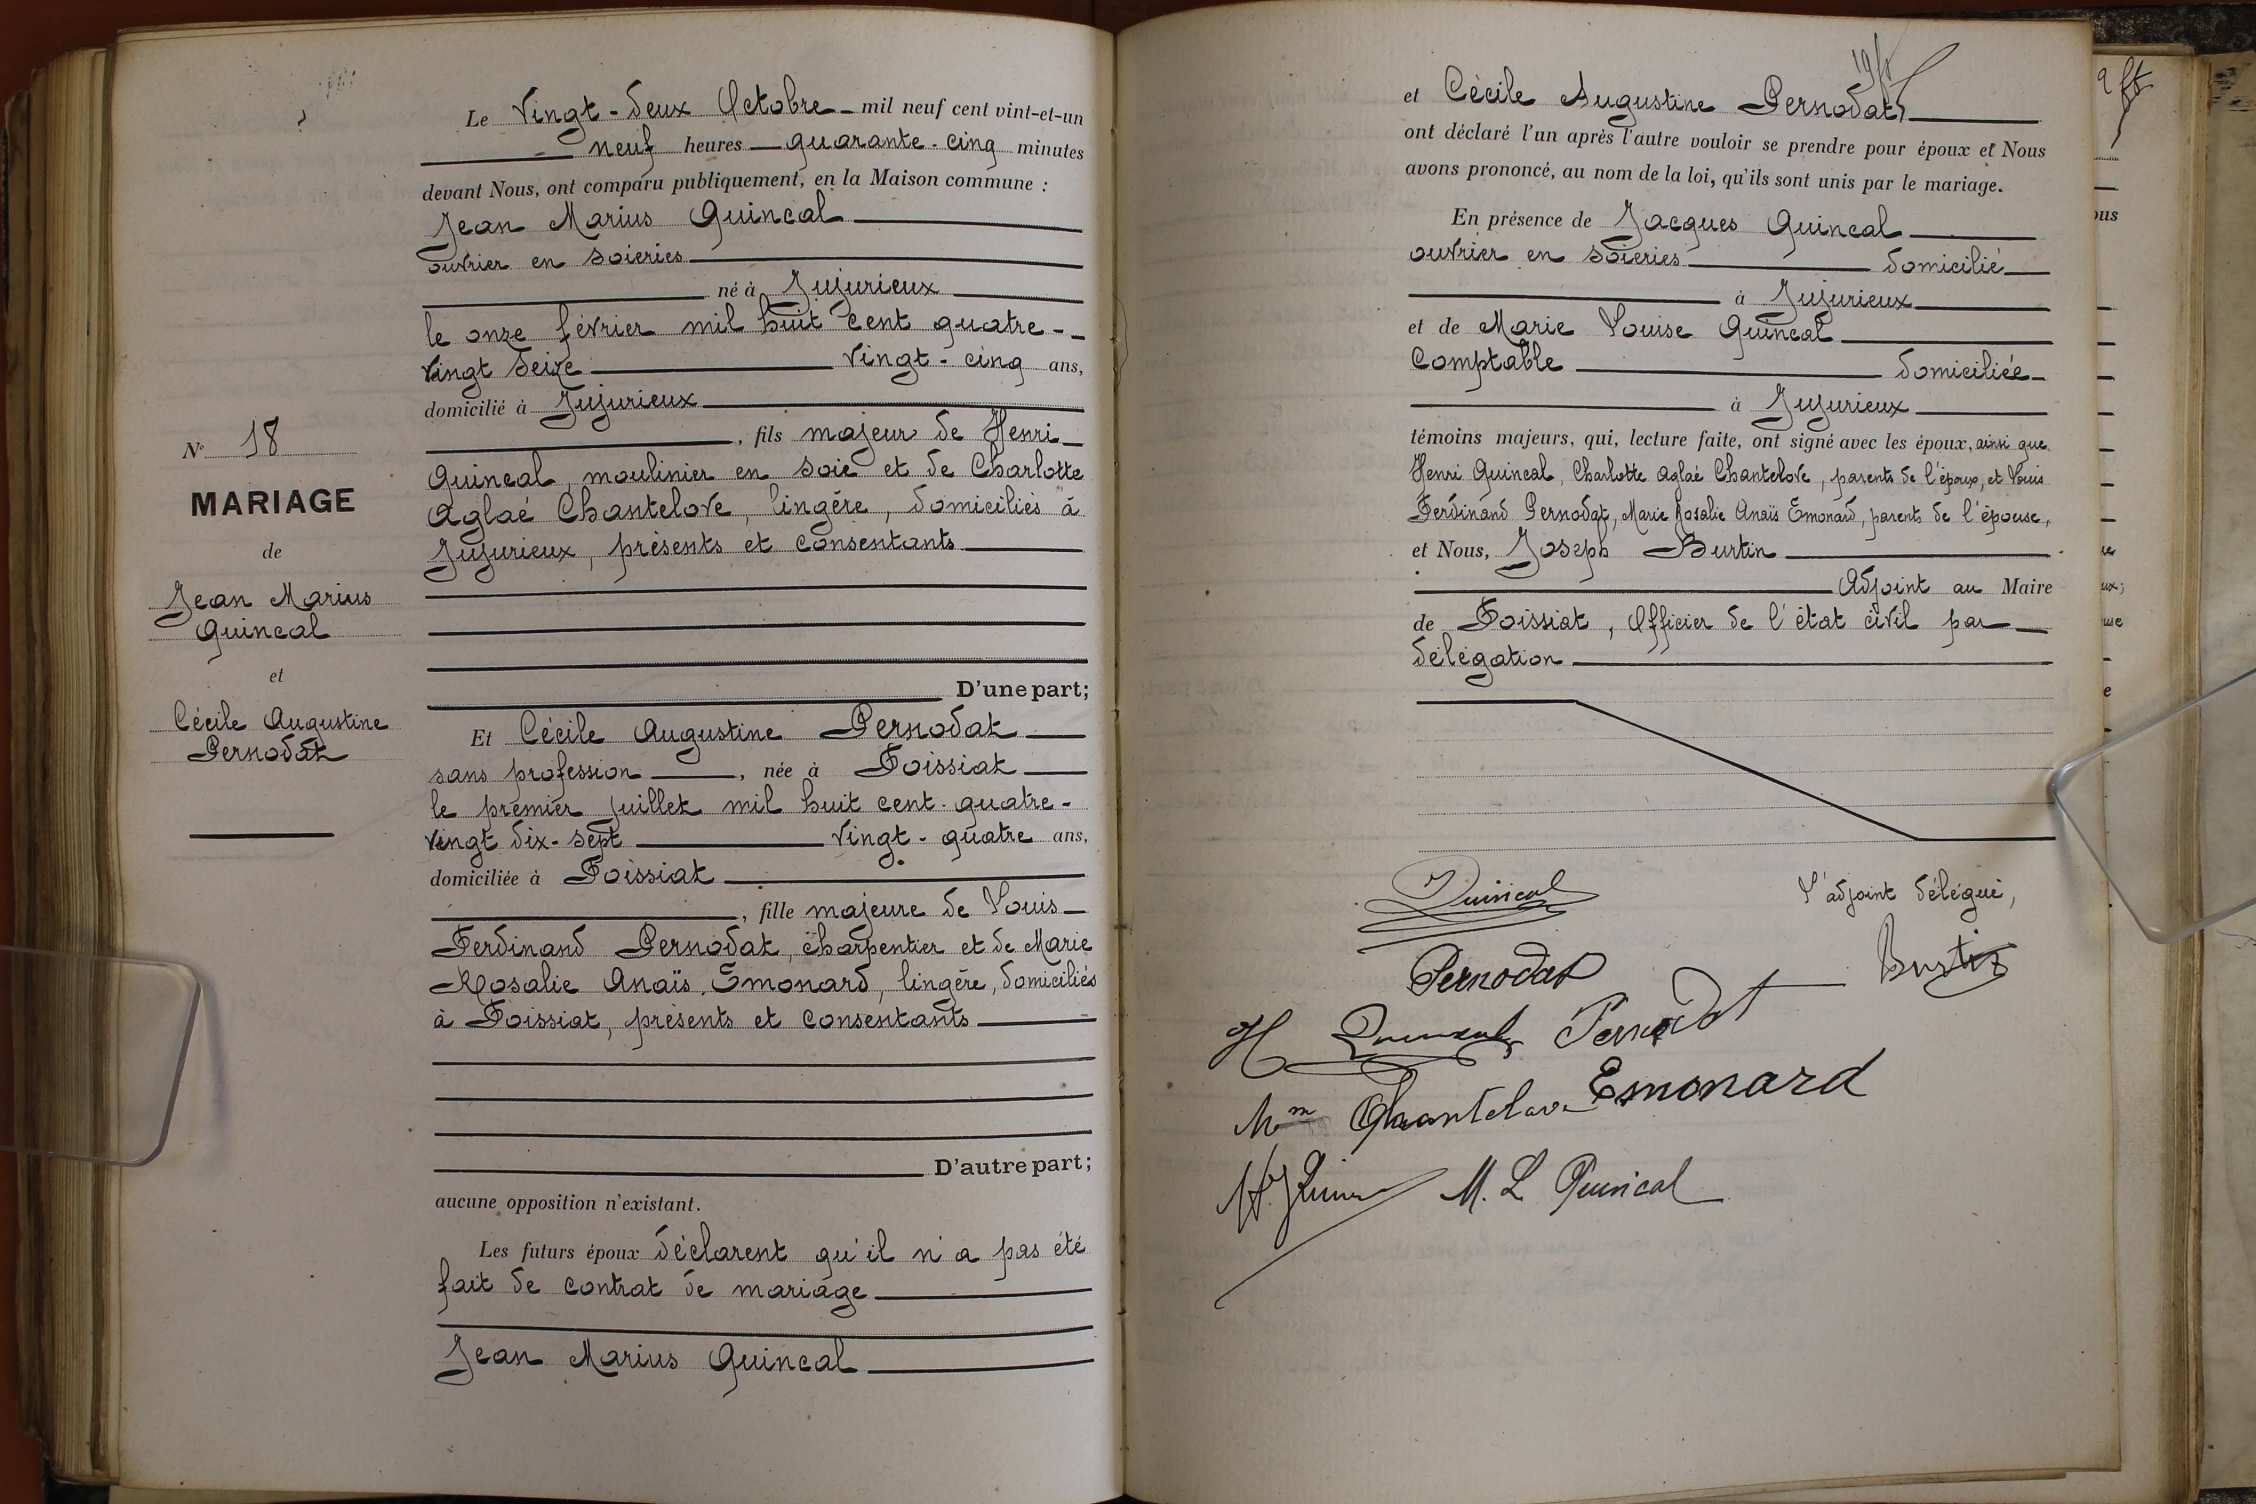 Le Vingt-deux Octobre mil neuf cent vint-et-un
neuf heures quarante-cinq minutes
devant Nous, ont comparu publiquement, en la Maison commune :
Jean Marius Quincal
ouvrier en soieries
né à Jujurieux
le onze février mil huit cent quatre-
vingt seize vingt-cinq ans,
domicilié à Jujurieux
, fils majeur de Henri
Quincal, moulinier en soie et de Charlotte
Aglaé Chantelove, lingère, domiciliés à
Jujurieux, présents et consentants
D'une part;
Et Cécile Augustine Pernodat
sans profession, née à Foissiat
le premier juillet mil huit cent quatre-
vingt dix-sept vingt-quatre ans,
domiciliée à Foissiat
, fille majeure de Louis
Ferdinand Pernodat, charpentier et de Marie
Rosalie Anaïs Emonard, lingère, domiciliés
à Foissiat, présents et consentants
D'autre part;
aucune opposition n'existant.
Les futurs époux déclarent qu'il n'a pas été
fait de contrat de mariage
Jean Marius Quincal
N° 18
MARIAGE
de
Jean Marius
Quincal
et
Cécile Augustine
Pernodat
et Cécile Augustine Pernodat
ont déclaré l'un après l'autre vouloir se prendre pour époux et Nous
avons prononcé, au nom de la loi, qu'ils sont unis par le mariage.
En présence de Jacques Quincal
ouvrier en soieries domicilié
à Jujurieux
et de Marie Louise Quincal
Comptable domiciliée
à Jujurieux
témoins majeurs, qui, lecture faite, ont signé avec les époux, ainsi que
Henri Quincal, Charlotte Aglaé Chantelove, parents de l'époux, et Louis
Ferdinand Pernodat, Marie Rosalie Anaïs Emonard, parents de l'épouse,
et Nous, Joseph Burtin
Adjoint au Maire
de Foissiat, Officier de l'état civil par
délégation
Quincal
L'adjoint délégué,
Pernodat
Burtin
H Quincal Pernodat
Mm Chantelove Emonard
M. L Quincal